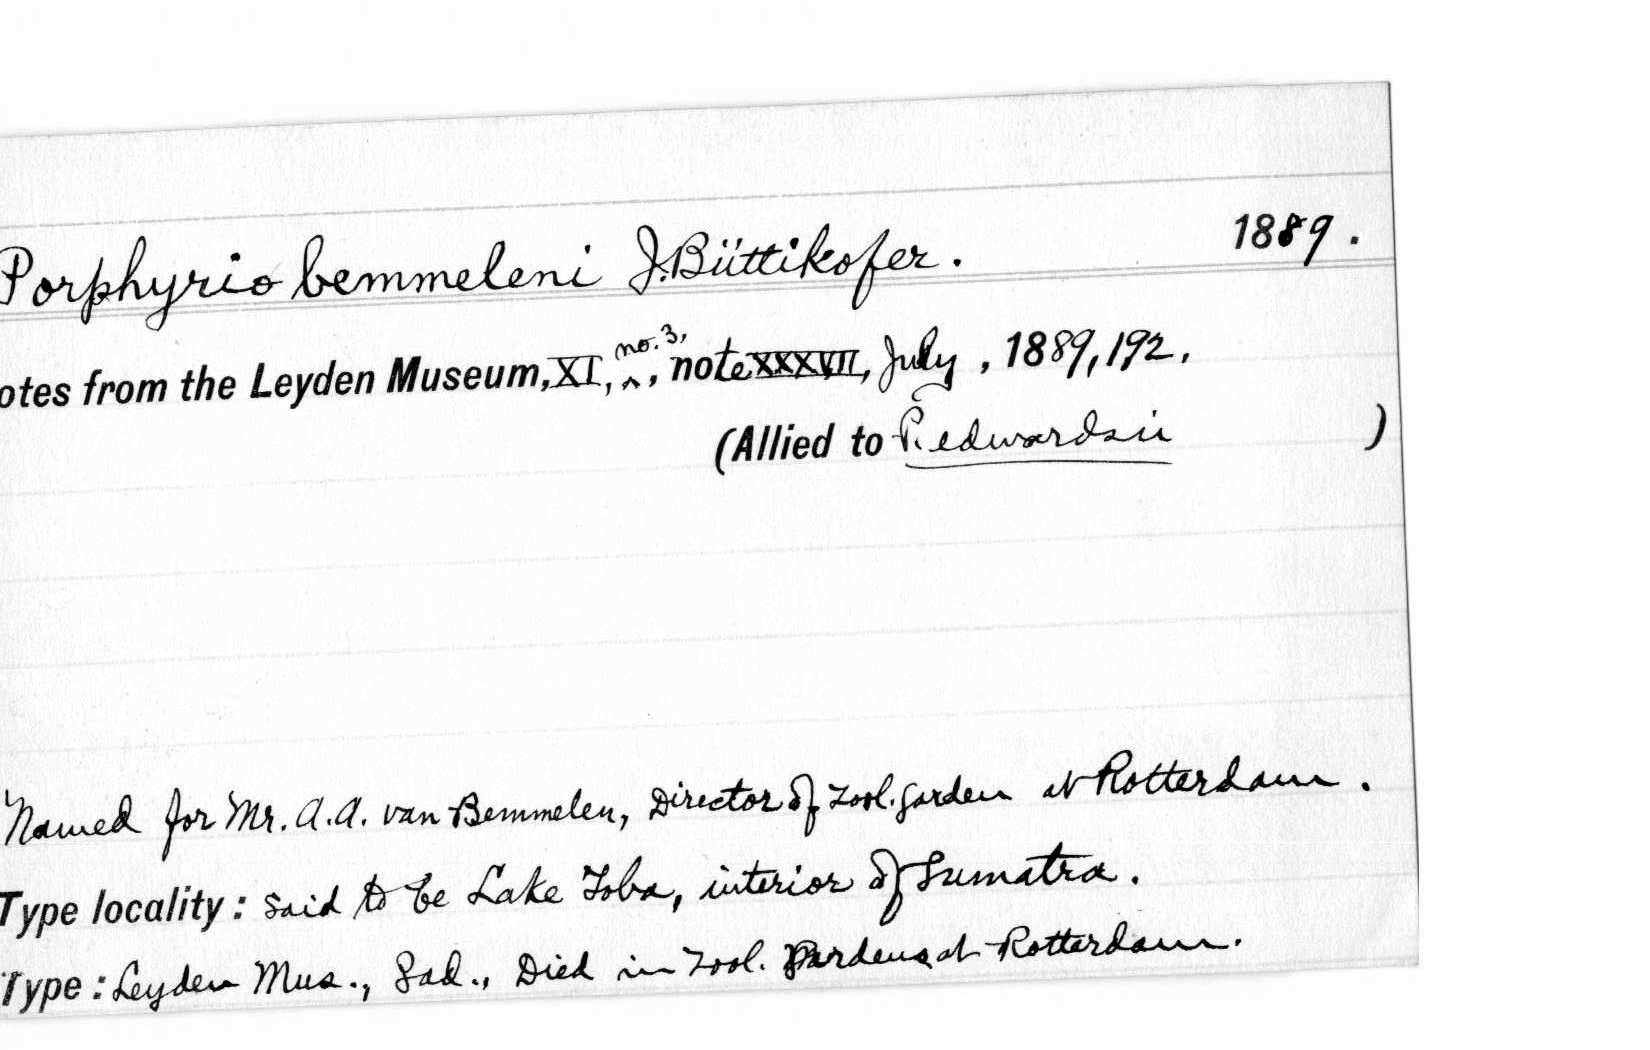 Porphyrio bemmeleni J. Büttikofer. 1889.
otes from the Leyden Museum, XI, no. 3, note XXXVII, July, 1889, 192.
(Allied to P. edwardsii )
Named for Mr. A.A. van Bemmelen, Director of Zool. Garden at Rotterdam.
Type locality: said to be Lake Toba, interior of Sumatra.
Type: Leyden Mus., ad., Died in Zool. Gardens at Rotterdam.